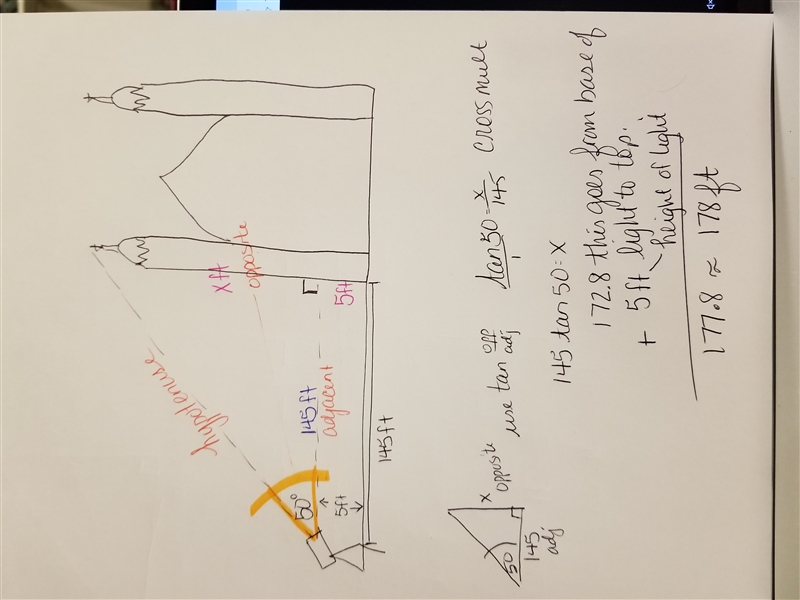 hypotenuse
x ft
opposite
50°
145 ft
adjacent
5ft
5ft
145ft
50
145
adj
x
opposite
use tan opp/adj
tan 50/1 = x/145 cross mult
145 tan 50 = x
172.8 this goes from base of
+ 5ft light to top.
height of light
177.8 ≈ 178 ft